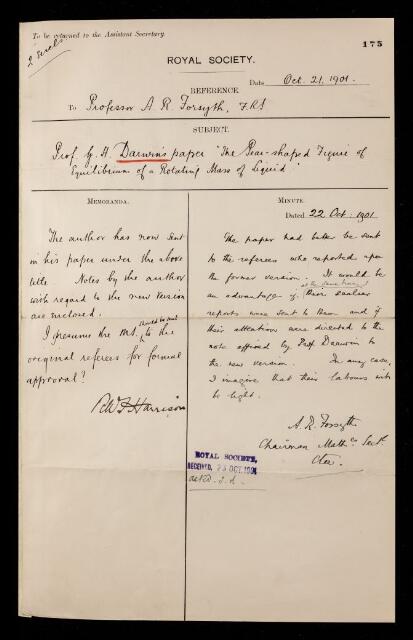 To be returned to the Assistant Secretary.
175
2 Encls
ROYAL SOCIETY.
Date Oct. 21, 1901.
REFERENCE
To Professor A. R. Forsyth, F.R.S
SUBJECT.
Prof. G. H. Darwin's paper "The Pear-shaped Figure of
Equilibrium of a Rotating Mass of Liquid"
MEMORANDA.
The author has now sent
in his paper under the above
title. Notes by the author
with regard to the new version
are enclosed.
I presume the MS. should be sent to the
original referees for formal
approval?
R W F Harrison
MINUTE.
Dated 22 Oct: 1901
The paper had better be sent
to the referees who reported upon
the former version. It would be
an advantage if, at the same time, their earlier
reports were sent to them and if
their attentions were directed to the
note affixed by Prof Darwin to
the new version. In any case,
I imagine that their labours will
be light.
A. R. Forsyth
Chairman Math. Sect.
Ctee.
ROYAL SOCIETY,
RECEIVED, 23 OCT. 1901